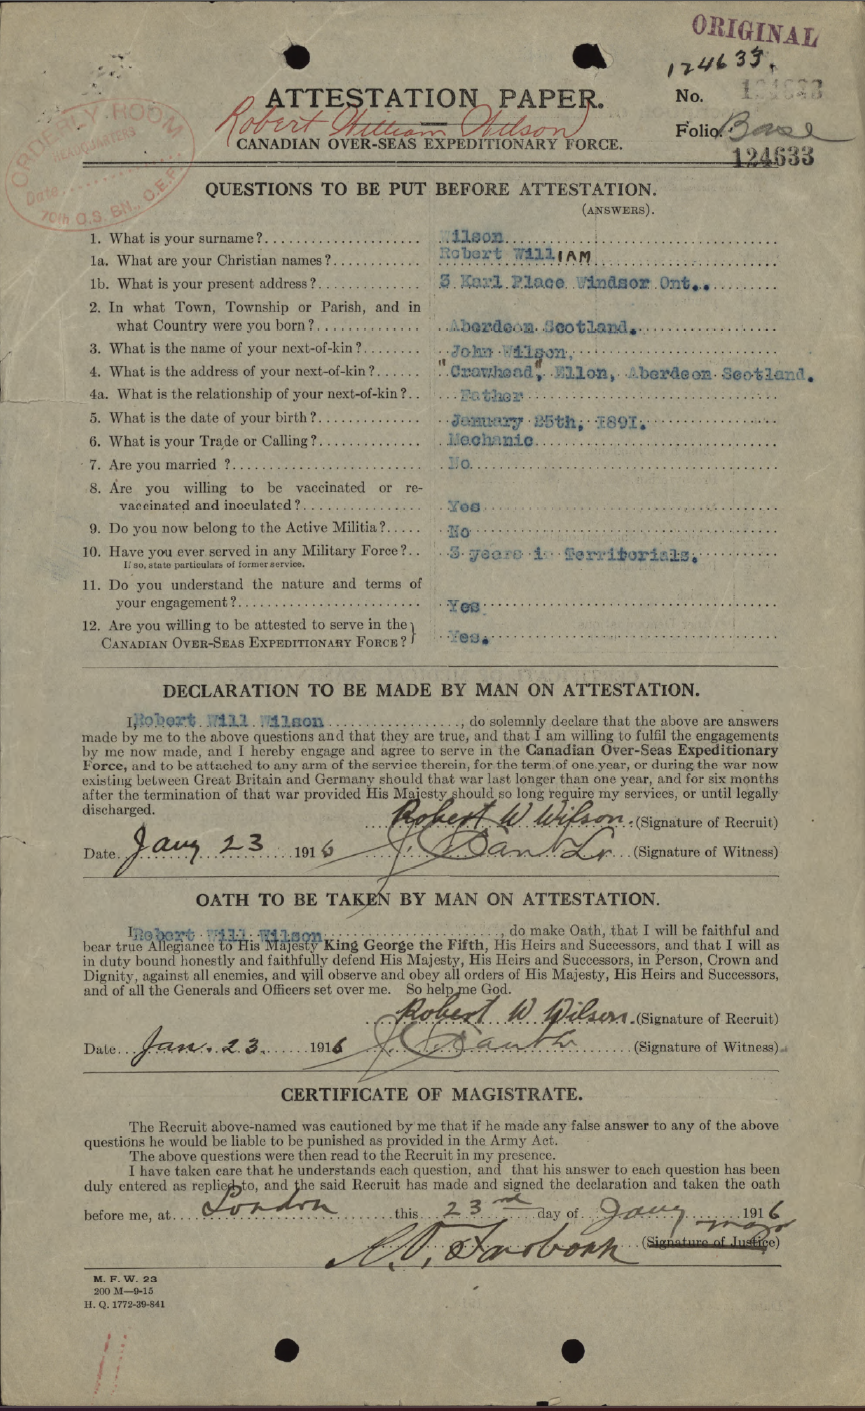 ORIGINAL
124633.
ATTESTATION PAPER.
No. 124633
Robert William Wilson
Folio.
CANADIAN OVER-SEAS EXPEDITIONARY FORCE.
124633
ORDERLY ROOM
HEADQUARTERS
Date
70th O.S. BN., C.E.F.
QUESTIONS TO BE PUT BEFORE ATTESTATION.
(ANSWERS).
1. What is your surname? Wilson
1a. What are your Christian names? Robert WillIAM
1b. What is your present address? 3 Karl Place Windsor Ont..
2. In what Town, Township or Parish, and in
what Country were you born? Aberdeen Scotland.
3. What is the name of your next-of-kin? John Wilson,
4. What is the address of your next-of-kin? "Crowhead", Ellon, Aberdeen Scotland.
4a. What is the relationship of your next-of-kin? Father
5. What is the date of your birth? January 25th, 1891.
6. What is your Trade or Calling? Mechanic
7. Are you married ? No
8. Are you willing to be vaccinated or re-
vaccinated and inoculated? Yes
9. Do you now belong to the Active Militia? No
10. Have you ever served in any Military Force? 3 years in Territorials.
If so, state particulars of former service.
11. Do you understand the nature and terms of
your engagement? Yes
12. Are you willing to be attested to serve in the
CANADIAN OVER-SEAS EXPEDITIONARY FORCE? } Yes.
DECLARATION TO BE MADE BY MAN ON ATTESTATION.
I, Robert Will Wilson, do solemnly declare that the above are answers
made by me to the above questions and that they are true, and that I am willing to fulfil the engagements
by me now made, and I hereby engage and agree to serve in the Canadian Over-Seas Expeditionary
Force, and to be attached to any arm of the service therein, for the term of one year, or during the war now
existing between Great Britain and Germany should that war last longer than one year, and for six months
after the termination of that war provided His Majesty should so long require my services, or until legally
discharged.
Robert W Wilson. (Signature of Recruit)
Date Jany 23 1916 (Signature of Witness)
OATH TO BE TAKEN BY MAN ON ATTESTATION.
I, Robert Will Wilson, do make Oath, that I will be faithful and
bear true Allegiance to His Majesty King George the Fifth, His Heirs and Successors, and that I will as
in duty bound honestly and faithfully defend His Majesty, His Heirs and Successors, in Person, Crown and
Dignity, against all enemies, and will observe and obey all orders of His Majesty, His Heirs and Successors,
and of all the Generals and Officers set over me. So help me God.
Robert W Wilson. (Signature of Recruit)
Date Jan. 23. 1916 (Signature of Witness)
CERTIFICATE OF MAGISTRATE.
The Recruit above-named was cautioned by me that if he made any false answer to any of the above
questions he would be liable to be punished as provided in the Army Act.
The above questions were then read to the Recruit in my presence.
I have taken care that he understands each question, and that his answer to each question has been
duly entered as replied to, and the said Recruit has made and signed the declaration and taken the oath
before me, at London this 23rd day of Jany 1916
Major
(Signature of Justice)
M. F. W. 23
200 M—9-15
H. Q. 1772-39-841